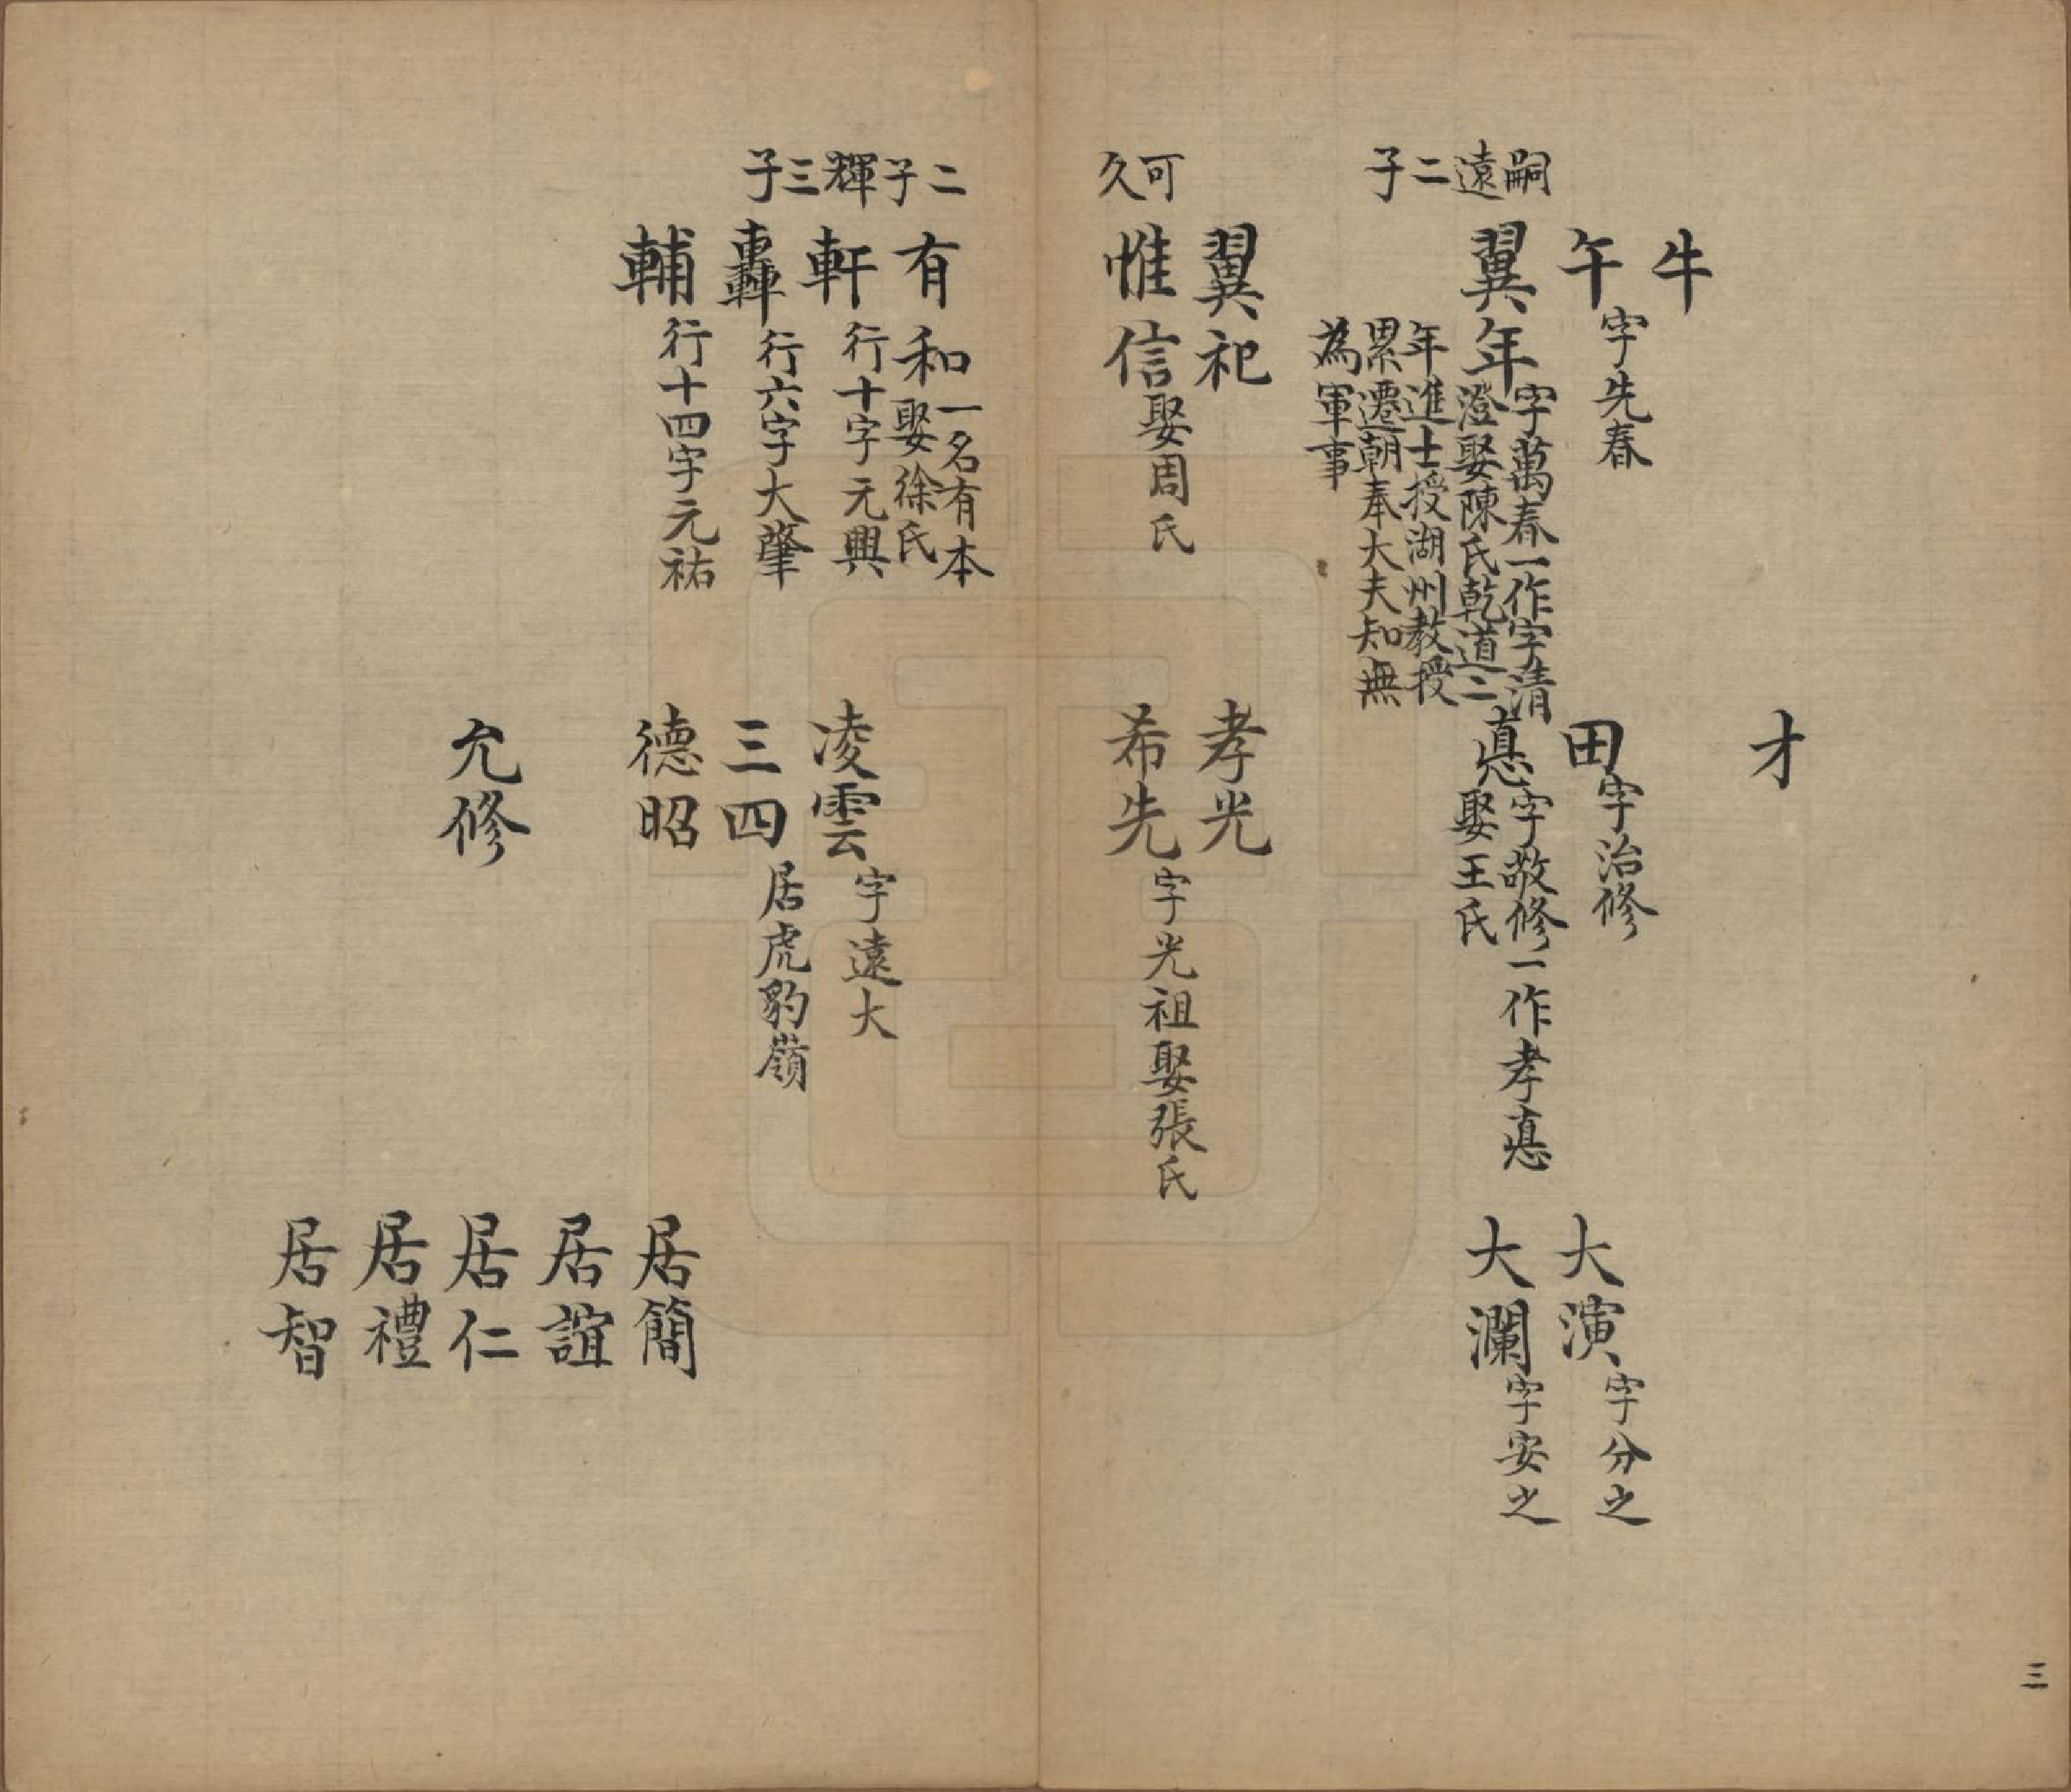 才
牛
午字先春
田字治修
大演字分之
嗣遠二子
翼年字萬春一作字清
澄娶陳氏乾道二
年進士授湖州教授
累遷朝奉大夫知無
為軍事
悳字敬修一作孝悳
娶王氏
大瀾字安之
翼祀
孝光
可久
惟信娶周氏
希先字光祖娶張氏
二子
有和一名有本
娶徐氏
輝三子
軒行十字元興
凌雲字遠大
轟行六字大肇
三四居虎豹嶺
輔行十四字元祐
德昭
居簡
居誼
允修
居仁
居禮
居智
三